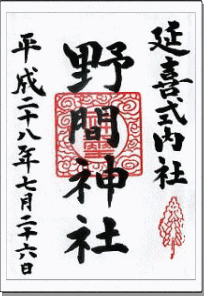 延喜式内社
野間神社
平成二十八年七月二十六日